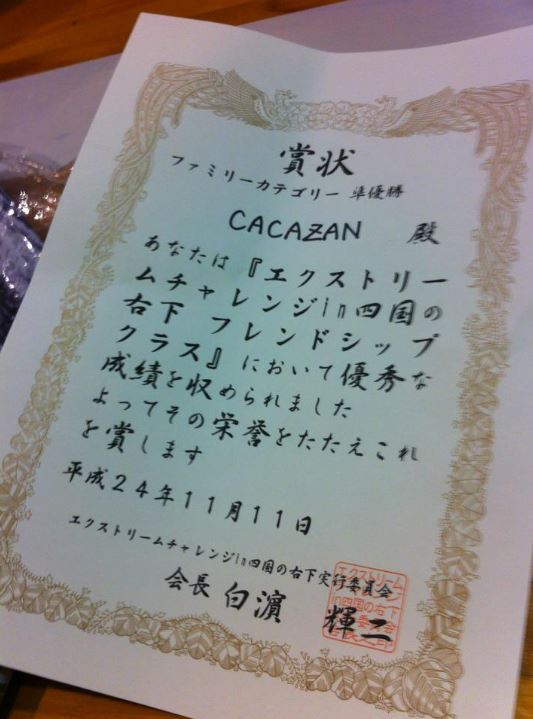 賞状
ファミリーカテゴリー 準優勝
CACAZAN 殿
あなたは『エクストリー
ムチャレンジin四国の
右下 フレンドシップ
クラス』において優秀な
成績を収められました
よってその栄誉をたたえこれ
を賞します
平成24年11月11日
エクストリームチャレンジin四国の右下実行委員会
会長 白濵 輝二